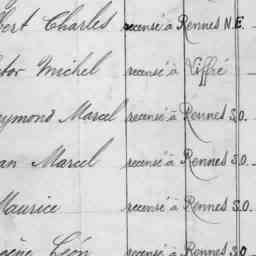 bert Charles recensé à Rennes N.E.
tor Michel recensé à Viffré
aymond Marcel recensé à Rennes S.O.
an Marcel recensé à Rennes S.O.
Maurice recensé à Rennes S.O.
gène Léon recensé à Rennes S.O.